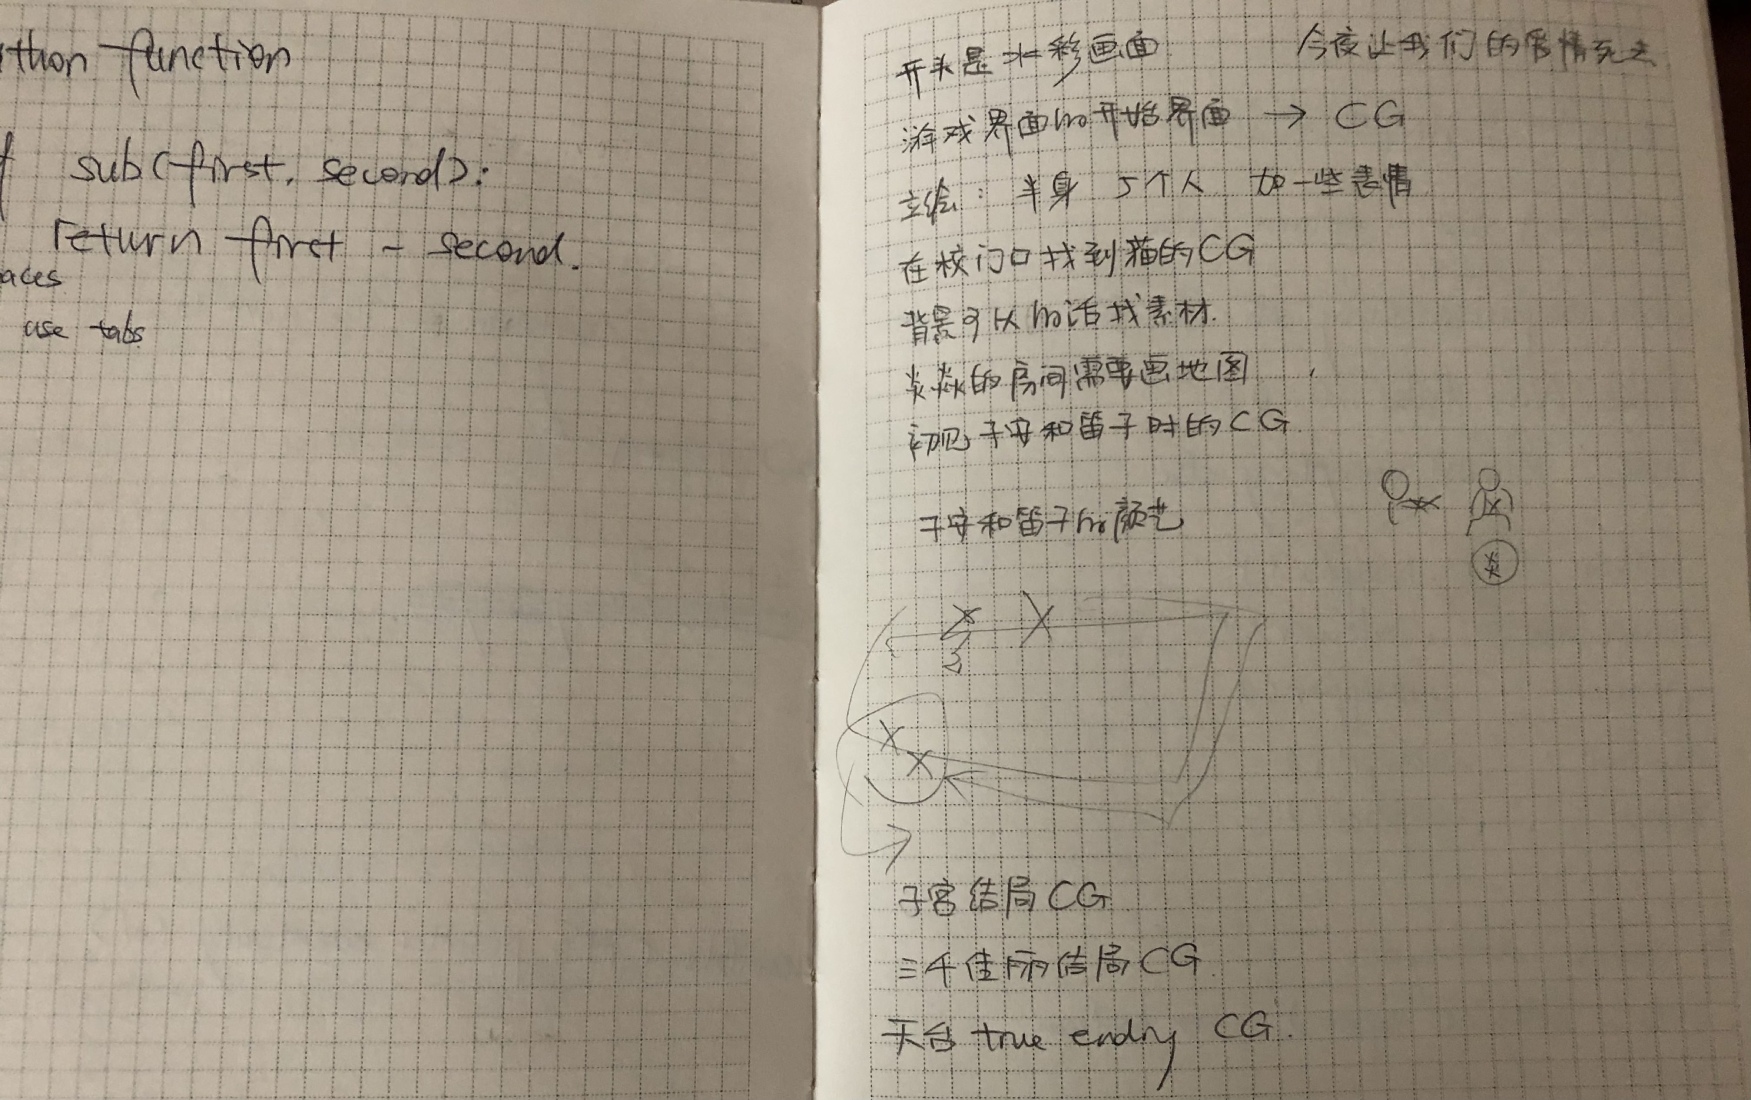 thon function
f sub(first, second):
return first - second.
aces
use tabs
开头是水彩画面 今夜让我们的爱情死去
游戏界面的开始界面 → CG
立绘：半身 5个人 加一些表情
在校门口找到猫的CG
背景可以的话找素材.
炎焱的房间需要画地图
初见子安和笛子时的CG
子安和笛子的颜艺
炎
子宫结局CG
三千佳丽结局CG
天台 true ending CG.